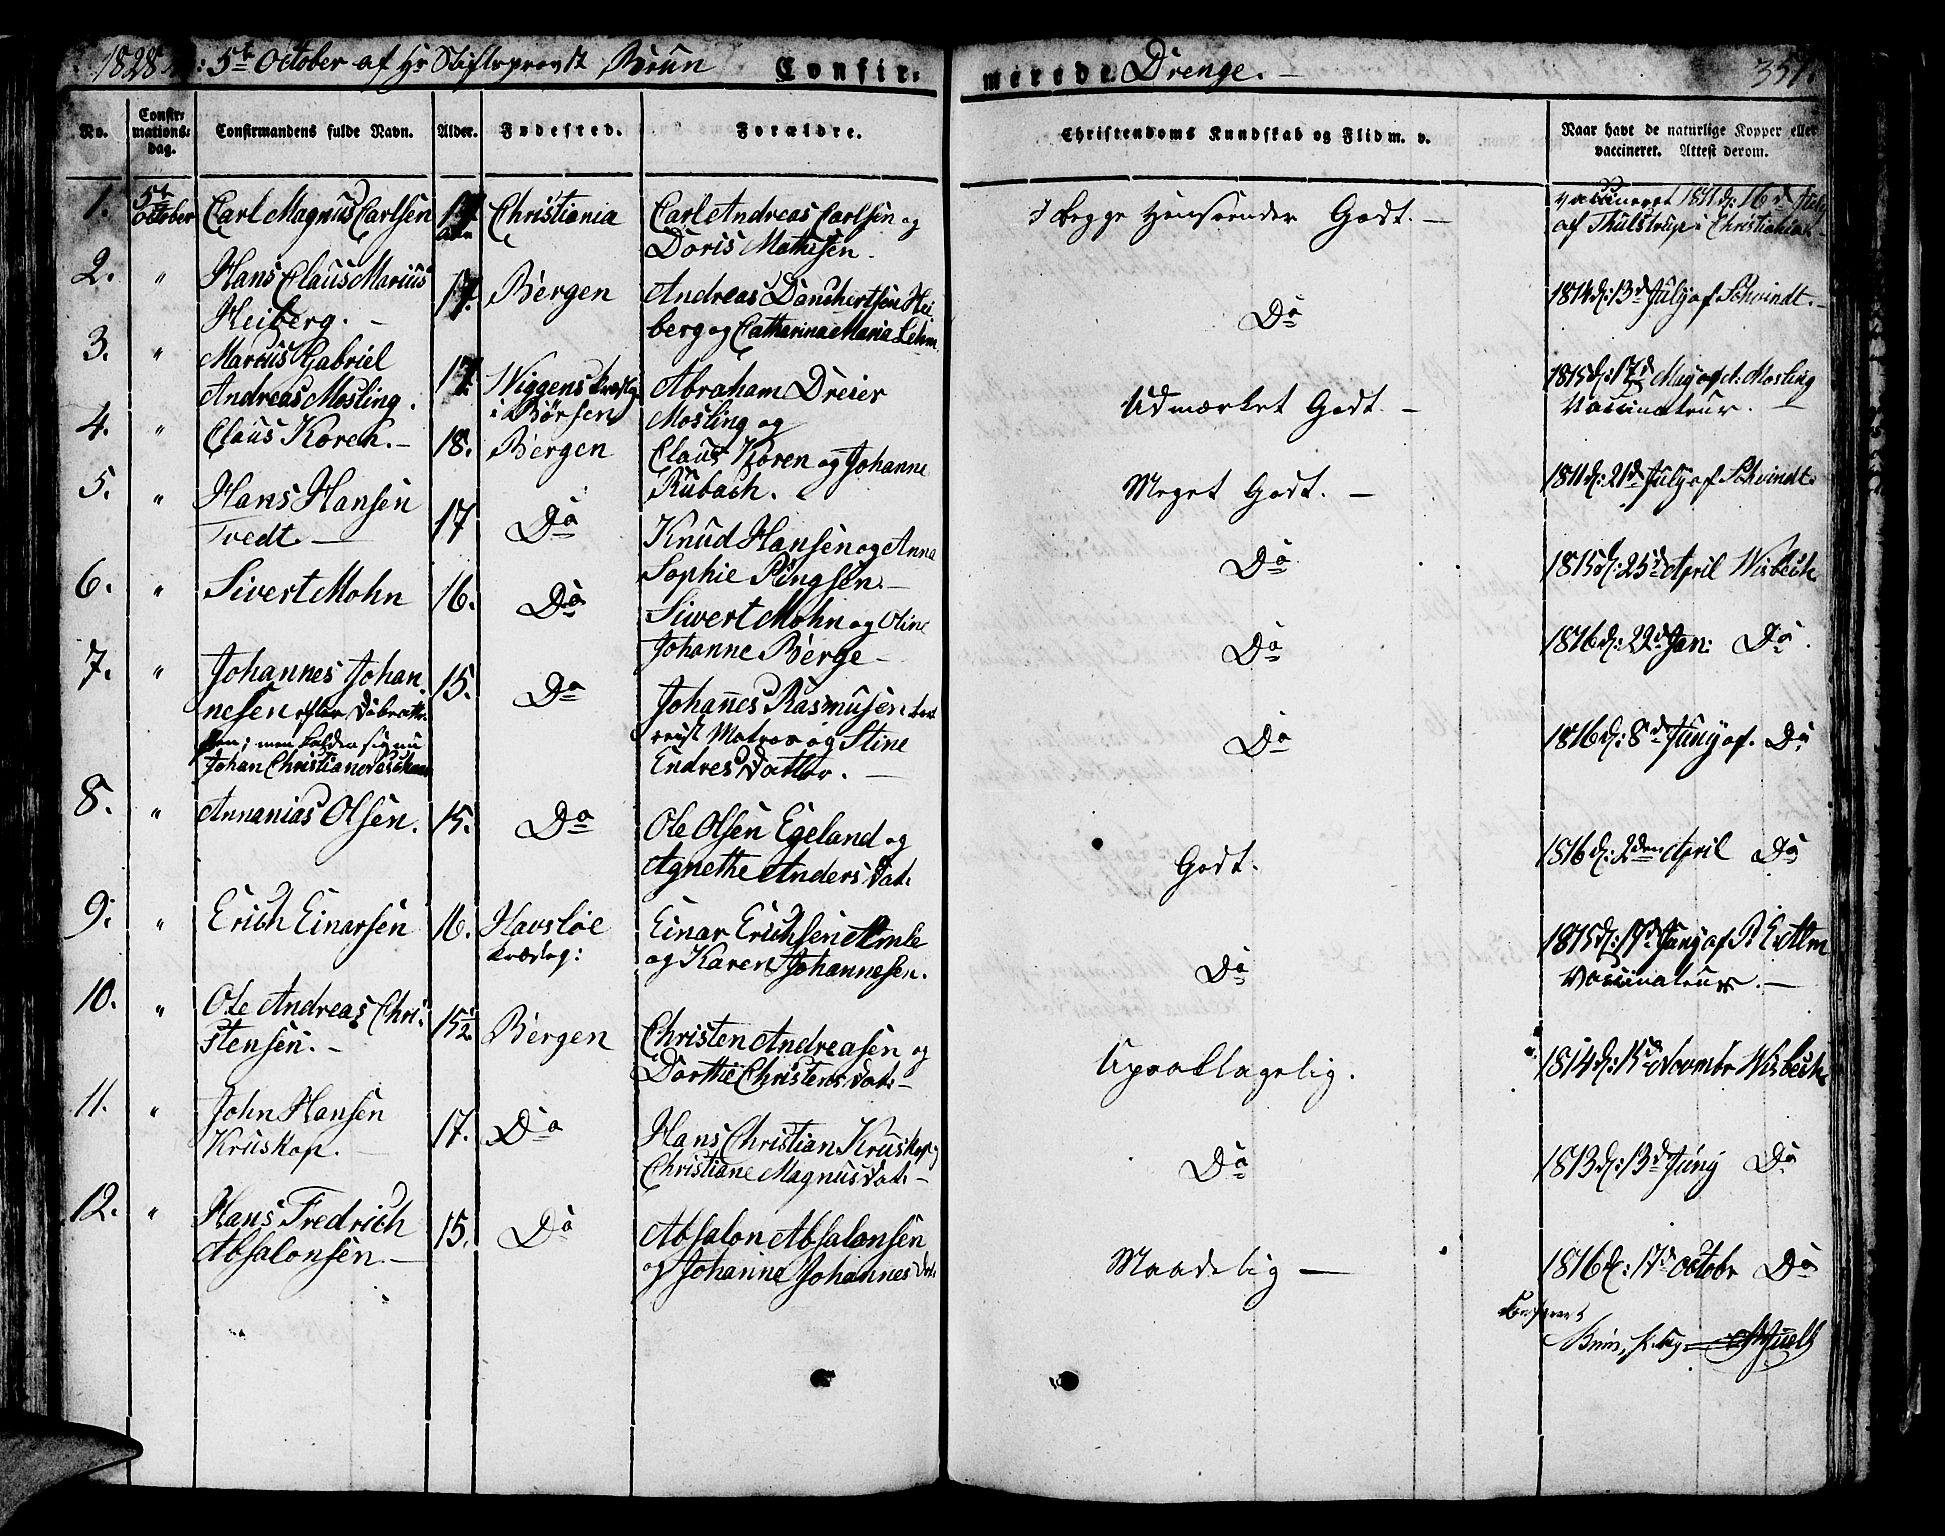 1828 d: 5te October af Hr Stiftsprovst Brun Confir: merede Drenge. — 351.
No. Confir- mations- dag. Confirmandens fulde Navn. Alder. Fødested. Forældre. Christendoms Kundskab og Flid m. v. Naar havt de naturlige Kopper eller vaccineret. Attest derom.
1. 5te October Carl Magnus Carlsen Christiania Carl Andreas Carlsen og Doris Mathisen. I begge Henseender Godt. — Vaccineret 1811 d: 16d af Thulstrup i Christiania
2. " Hans Claus Marius Heiberg. — 17. Bergen Andreas Danchertsen Heiberg og Catharina Maria Lehm Do 1814 d: 13d July af Schvindt. —
3. " Marcus Gabriel Andreas Mosling. 17 Wiggens i Børsen Abraham Dreier Mosling og Udmærket Godt. — 1815 d: 17d May af A. Mosling Vaccinateur. —
4. " Claus Koren. — 18. Bergen Claus Koren og Johanne Rubach. Meget Godt. — 1811 d: 21d July af Schvindt.
5. " Hans Hansen Tvedt. — 17 Do Knud Hansen og Anna Sophie Ringsen. — Do 1815 d: 25d April Wisbech
6. " Sivert Mohn 16. Do Siwert Mohn og Oline Johanne Berge — Do 1816 d: 22d Jan: Do.
7. " Johannes Johannesen efter men kalder sig nu Johan Christian 15. Do Johannes Rasmusen Matros og Stine Endres Datter. — Do 1816 d: 8d Juny af. Do
8. " Annanias Olsen. 15. Do Ole Olsen Egeland og Agnethe Anders Dat: Godt. 1816 d: 2den April Do
9. " Erich Einarsen 16. Havsløe Einar Erichsen Amle og Karen Johannesen. Do 1815 d: 17d Juny af Vaccinateur. —
10. " Ole Andreas Christensen. — 15½ Bergen Christen Andreasen og Dorthe Christens Dat: — Upaaklagelig. 1814 d: 15d Novembr Wisbech
11. " John Hansen Kruskop. — 17. Do Hans Christian Kruskop og Christiane Magnus Dat: — Do 1813 d: 13d Juny Do
12. " Hans Fredrich Absalonsen. — 15. Do Absalon Absalonsen og Johanne Johannes Dat: Maadelig — 1816 d: 17d Octobr Do
Confereret